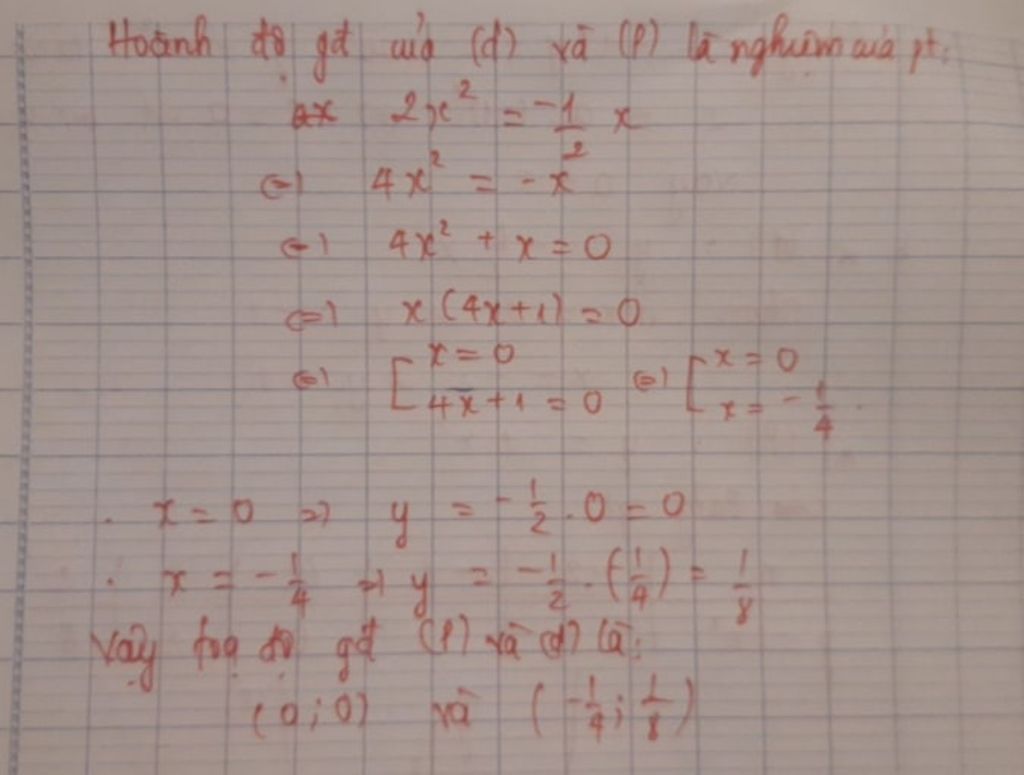 Hoành độ gđ của (d) và (P) là nghiệm của pt:
2x² = -1/2 x
<=> 4x² = -x
<=> 4x² + x = 0
<=> x(4x+1) = 0
<=> [ x = 0 <=> [ x = 0
4x+1 = 0 x = -1/4
. x = 0 => y = -1/2 . 0 = 0
. x = -1/4 => y = -1/2 . (-1/4) = 1/8
Vậy toạ độ gđ (P) và (d) là:
(0;0) và (-1/4; 1/8)